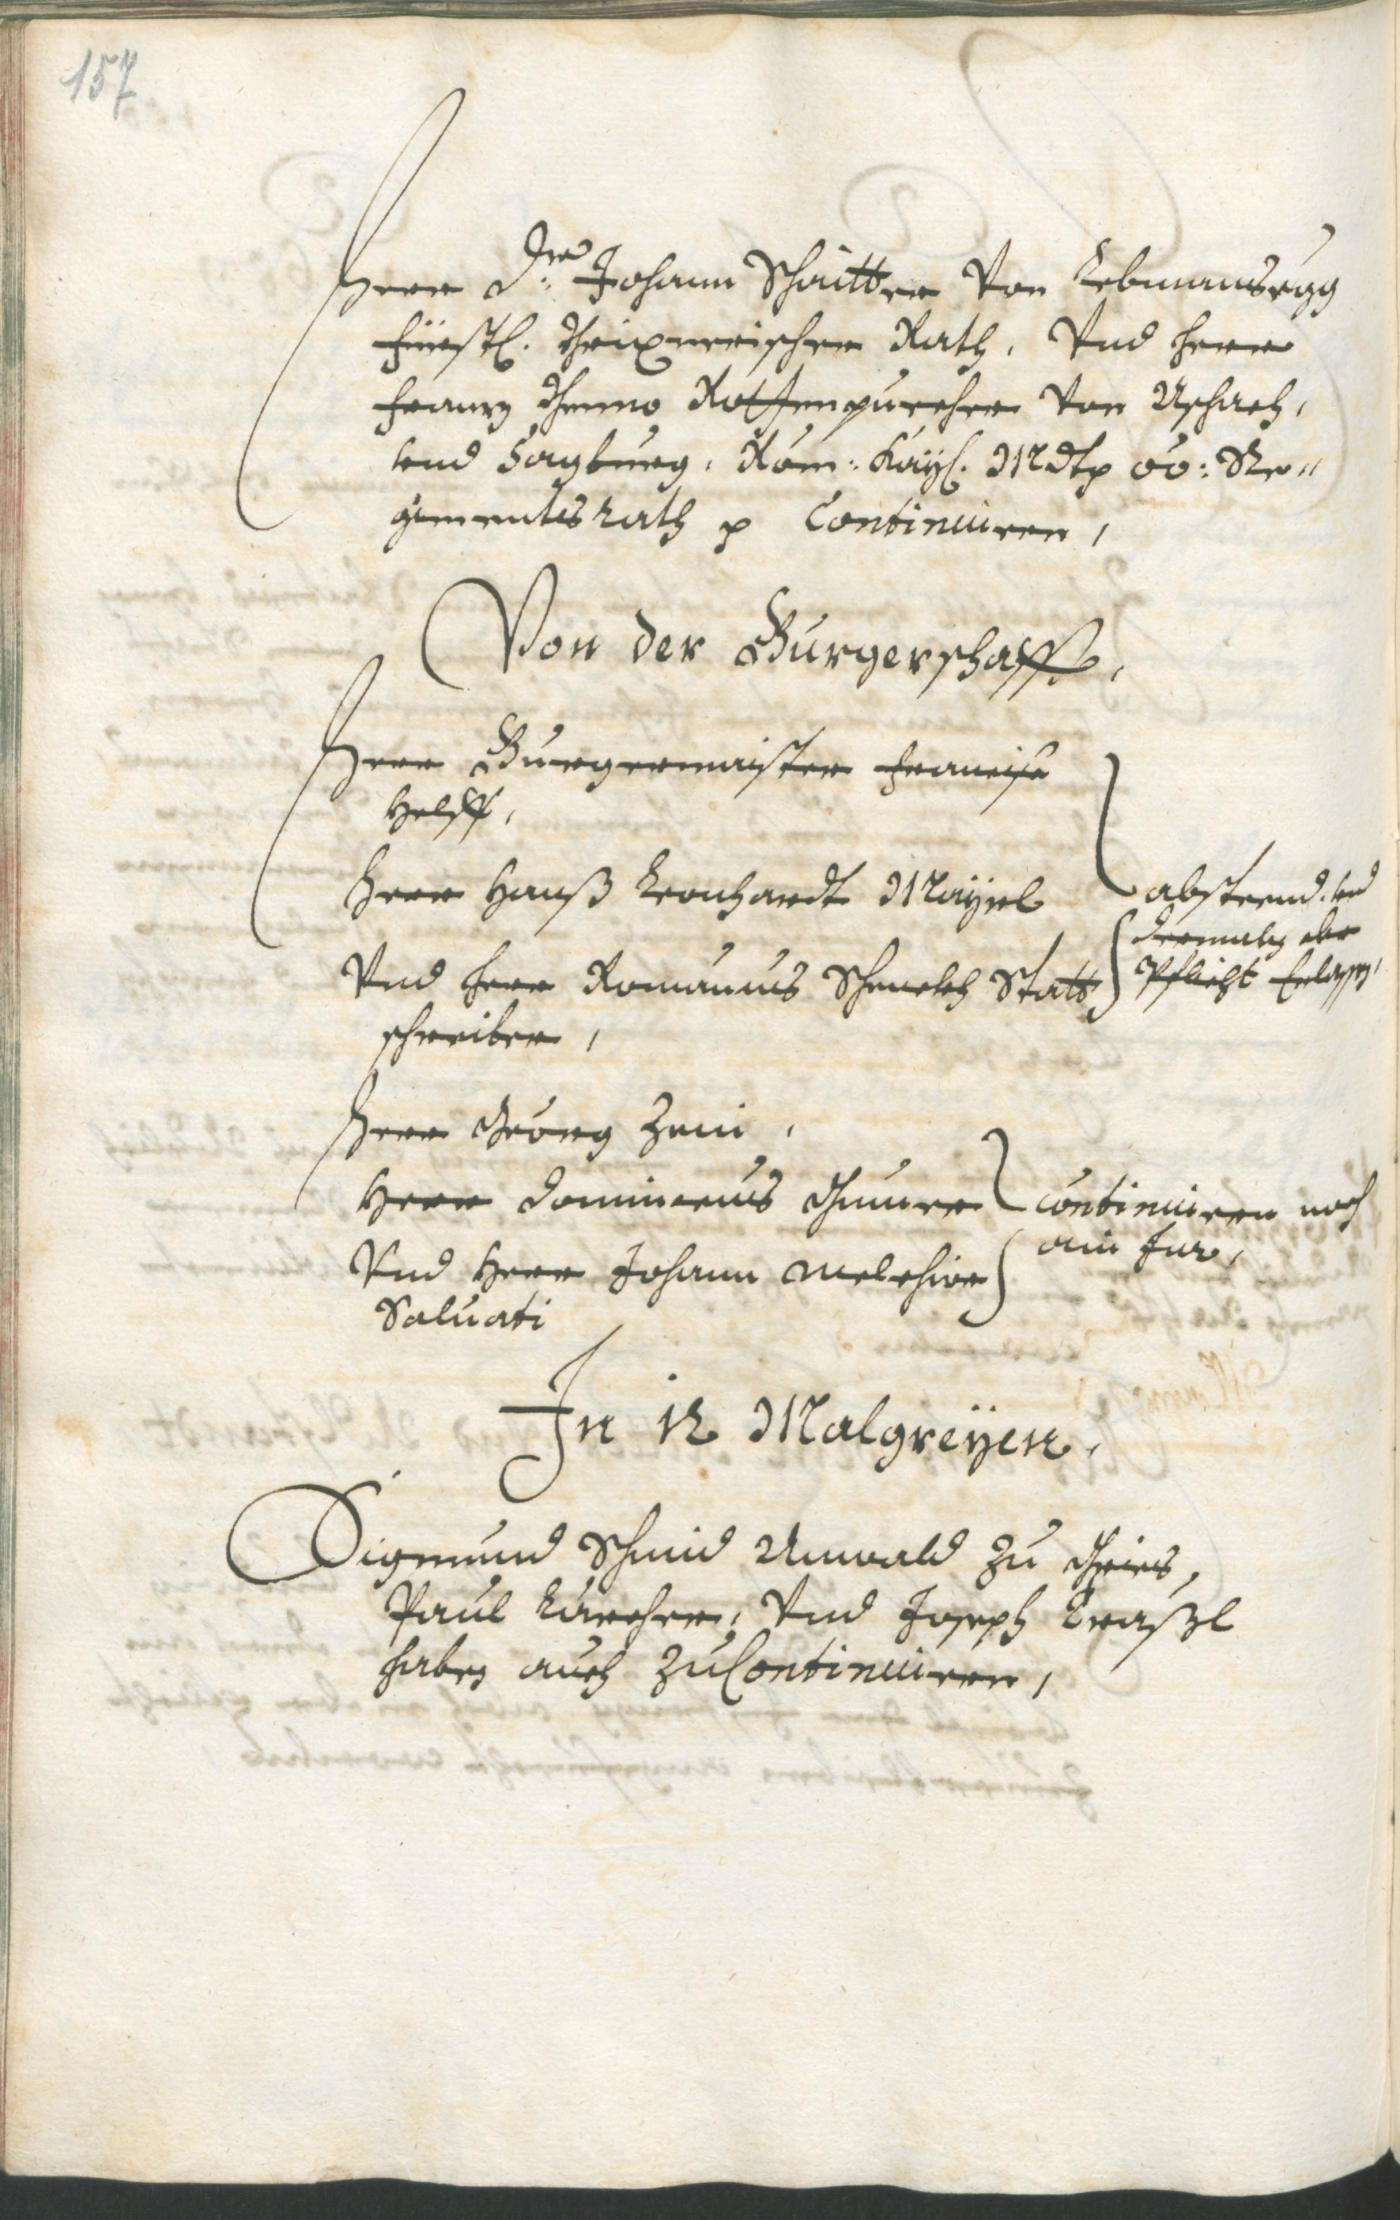 157
Herr Dr: Johann Schuitter Von Lebmansegg
Fürstl. Brixnerischer Rath, Vnd Herr
Franz Benno Rossenpurcher Von Aschach,
vnd Sagburg, Röm: Kaÿs. Mdtp oö: Re„
gimentsrath p Continuiren,
Von der Burgerschafft,
Herr Burgermaister Francisc
Helff,
Herr Hanß Leonhardt Maÿrl
Vnd Herr Romanus Schenckh Statt
schreiber,
abstreund. vnd
dermaln der
Pflicht Erlassen,
Herr Georg Zeni,
Herr Dominicus
Vnd Herr Johann Melchior
Saluati
continuiren noch
ain Jar,
In 12 Malgreÿen,
Sigmund Schmid Anwald zu Gries,
Paul Karcher, Vnd Joseph Trafzl
haben auch zu Continuiren,